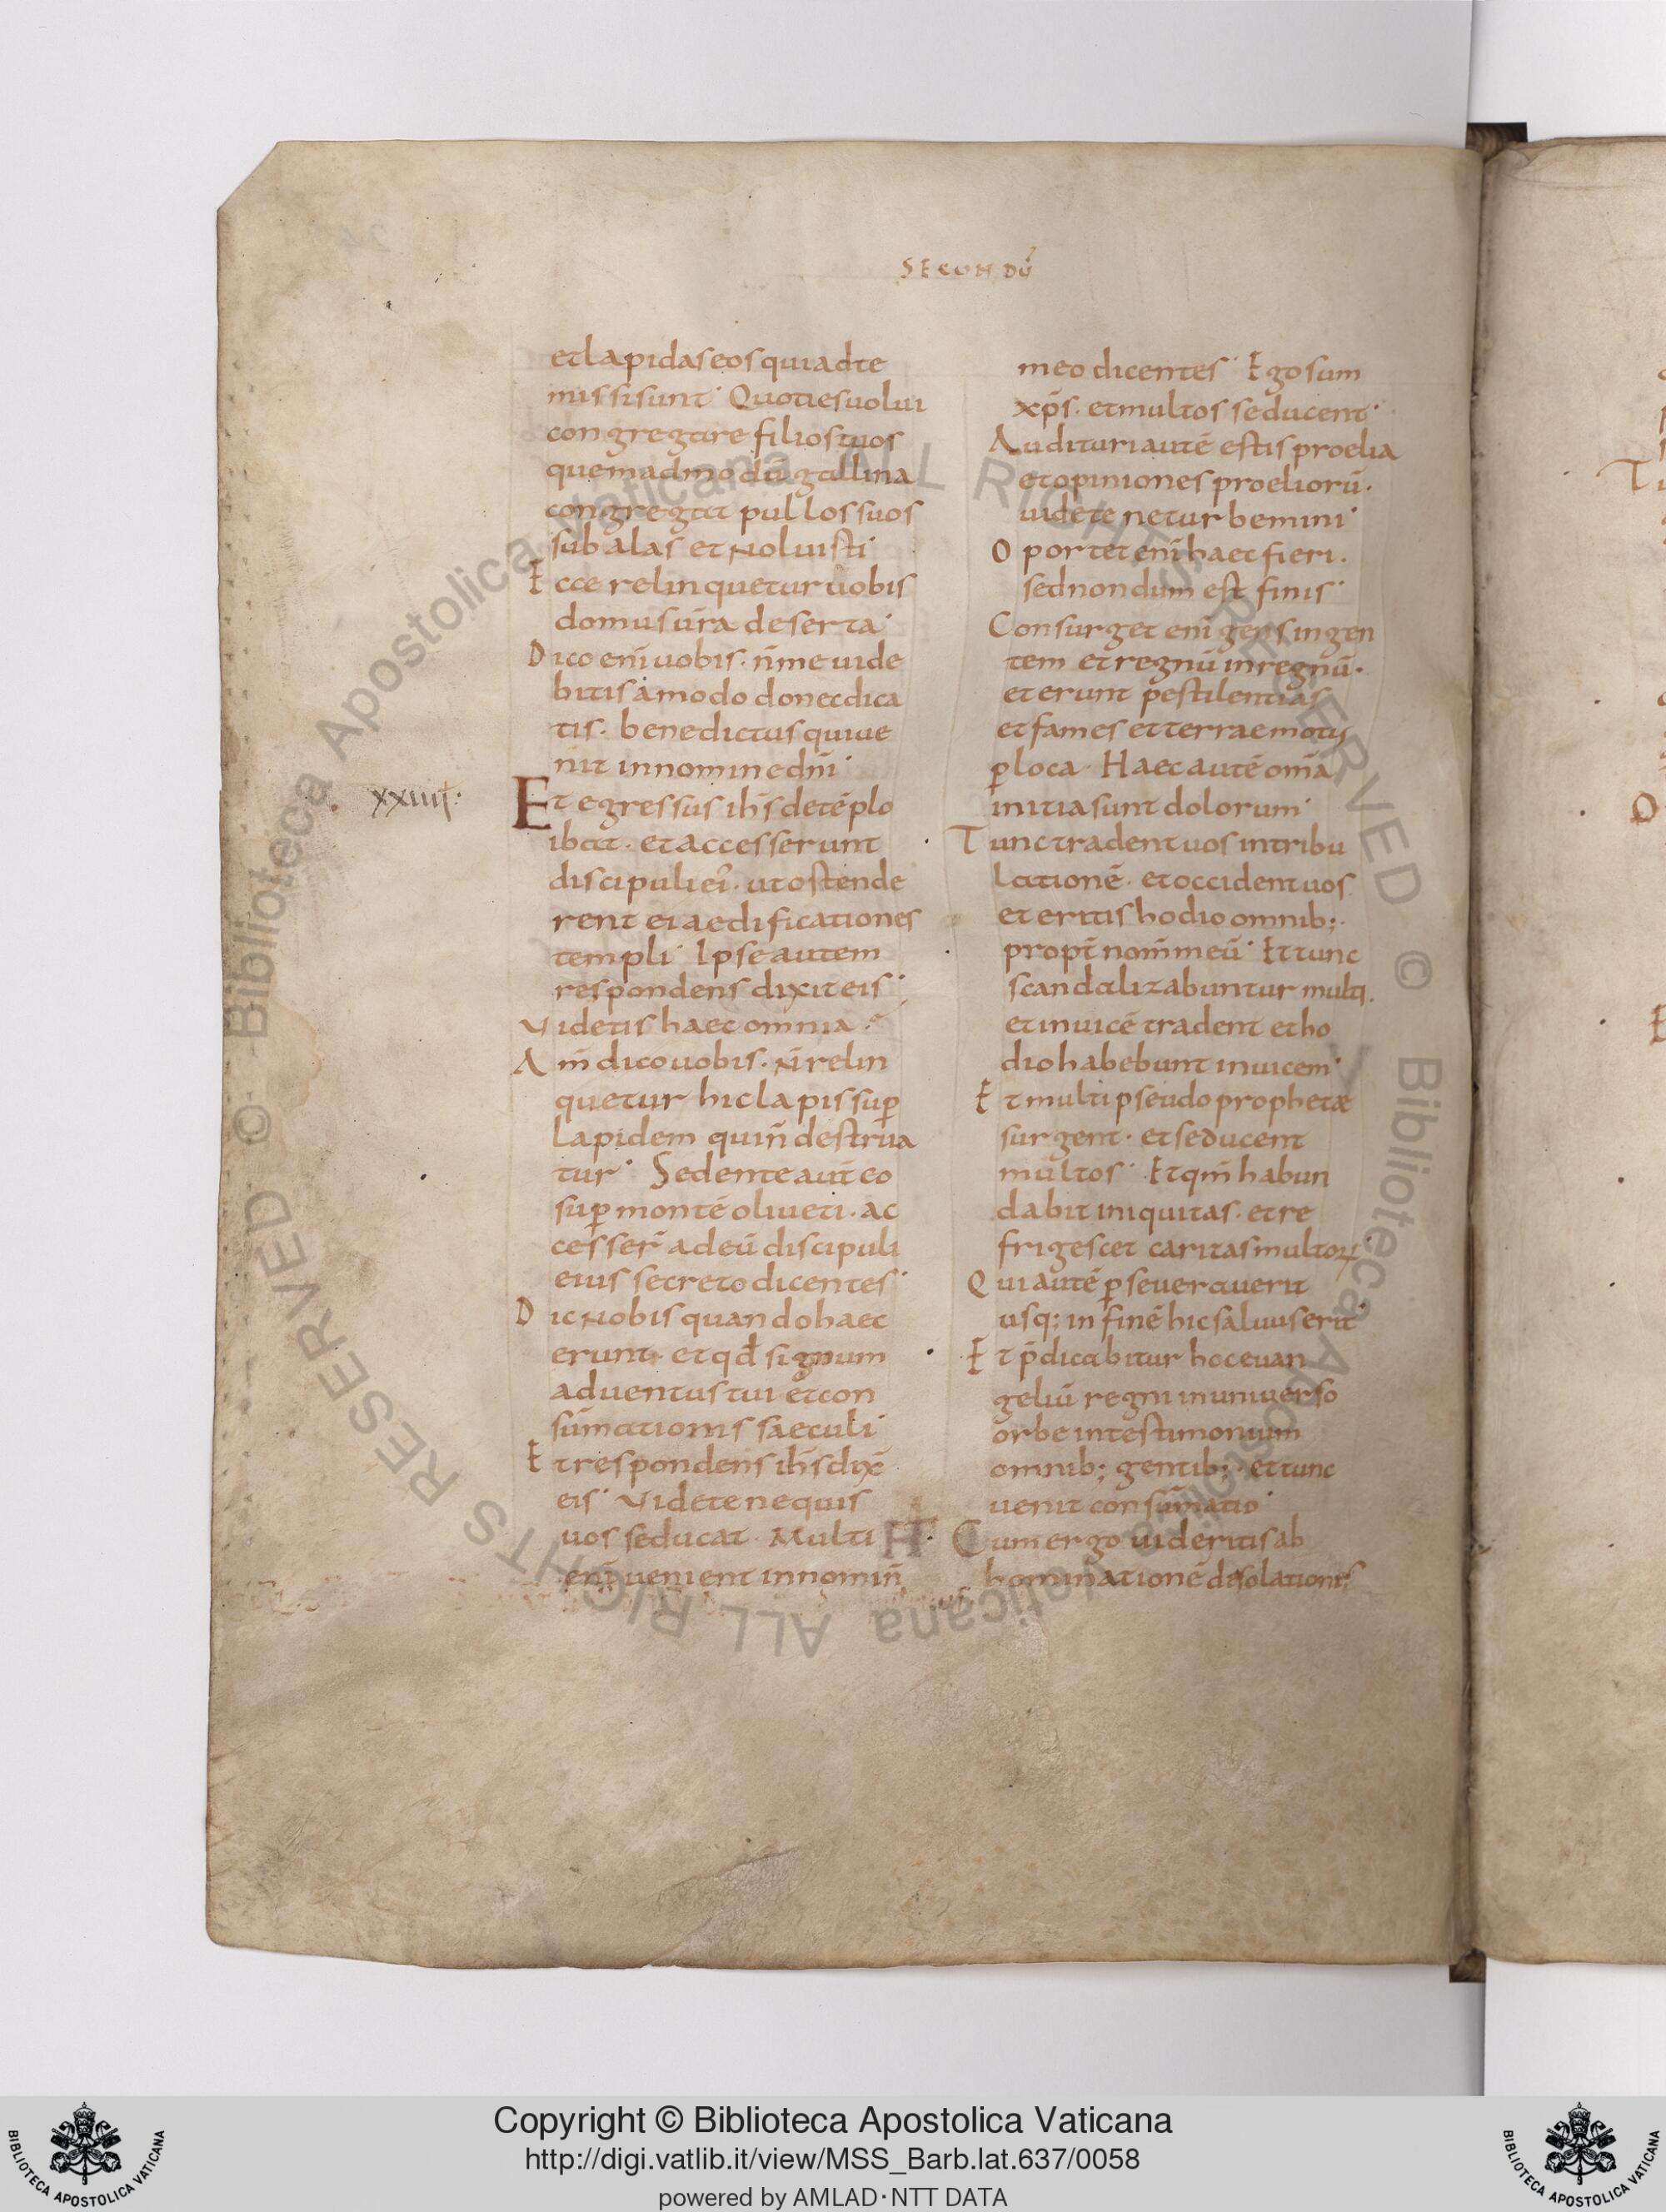 SECONDŪ
et lapidas eos qui ad te
missi sunt· Quoties volui
congregare filios tuos
quemadmodū gallina
congregat pullos suos
sub alas et noluisti·
Ecce relinquetur vobis
domus v̄ra deserta·
Dico enī vobis· n̄ me vide
bitis amodo donec dica
tis· benedictus qui ve
nit in nomine dn̄i·
xxiiii·
Et egressus ih̄s de tēplo
ibat· et accesserunt
discipuli ei'· ut ostende
rent ei aedificationes
templi· Ipse autem
respondens dixit eis·
Videtis haec omnia·
Am̄ dico vobis· n̄ relin
quetur hic lapis sup̄
lapidem qui n̄ destrua
tur· Sedente aut̄ eo
sup̄ montē oliveti· ac
cesser̄ ad eū discipuli
eius secreto dicentes·
Dic nobis quando haec
erunt· et qd̄ signum
adventus tui et con
sūmationis saeculi·
Et respondens ih̄s dix̄
eis· Videte ne quis
vos seducat· Multi
enī venient in nomin̄
meo dicentes· Ego sum
xp̄s· et multos seducent·
Audituri autē estis proelia
et opiniones proeliorū·
videte ne turbemini·
Oportet enī haec fieri·
sed nondum est finis·
Consurget enī gens in gen
tem et regnū in regnū·
et erunt pestilentias
et fames et terraemotus
p̄ loca· Haec autē om̄a
initia sunt dolorum·
Tunc tradent vos in tribu
lationē· et occident vos
et eritis hodio omnib;·
propt̄ nom̄ meū· Et tunc
scandalizabuntur multi·
et invicē tradent et ho
dio habebunt invicem·
Et multi pseudoprophetæ
surgent· et seducent
multos· Et qm̄ habun
dabit iniquitas· et re
frigescet caritas multoꝝ·
Qui autē p̄severaverit
usq; in finē hic salvus erit·
Et p̄dicabitur hoc evan
geliū regni in universo
orbe in testimonium
omnib; gentib;· et tunc
venit consūmatio·
Cum ergo videritis ab
hominationē desolationis
Copyright © Biblioteca Apostolica Vaticana
http://digi.vatlib.it/view/MSS_Barb.lat.637/0058
powered by AMLAD·NTT DATA
BIBLIOTECA APOSTOLICA VATICANA
BIBLIOTECA APOSTOLICA VATICANA
© Biblioteca Apostolica Vaticana ALL RIGHTS RESERVED
© Biblioteca Apostolica Vaticana ALL RIGHTS RESERVED